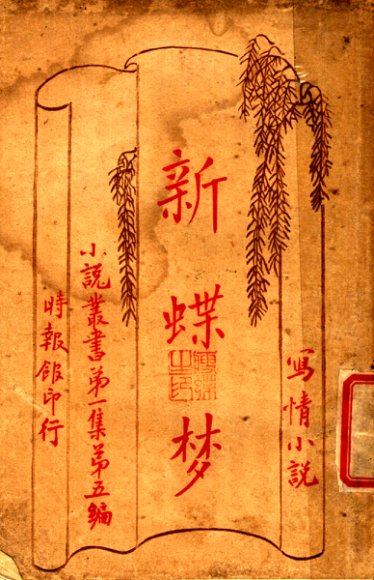 寫情小說
新蝶梦
小說叢書第一集第五編
時報館印行